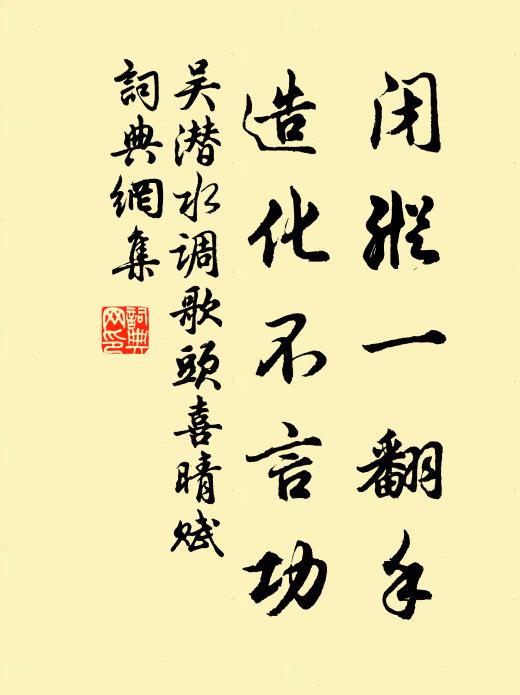 闭縱一翻手
造化不言功
吴潜水调歌頭喜晴赋
詞典網集
詞典网印